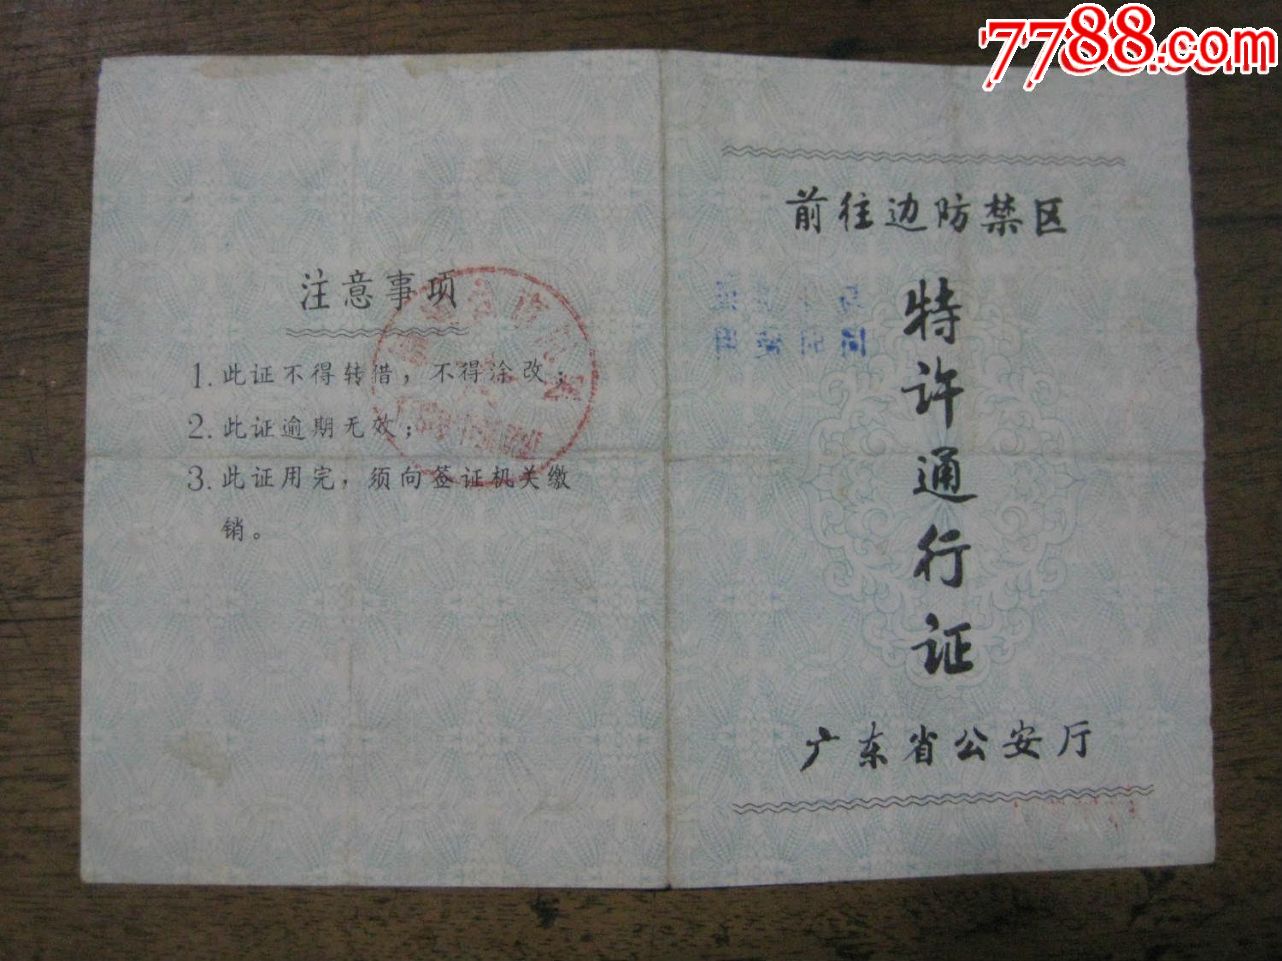 7788.com
注意事项
1. 此证不得转借，不得涂改；
2. 此证逾期无效；
3. 此证用完，须向签证机关缴
销。
前往边防禁区
特许通行证
广东省公安厅